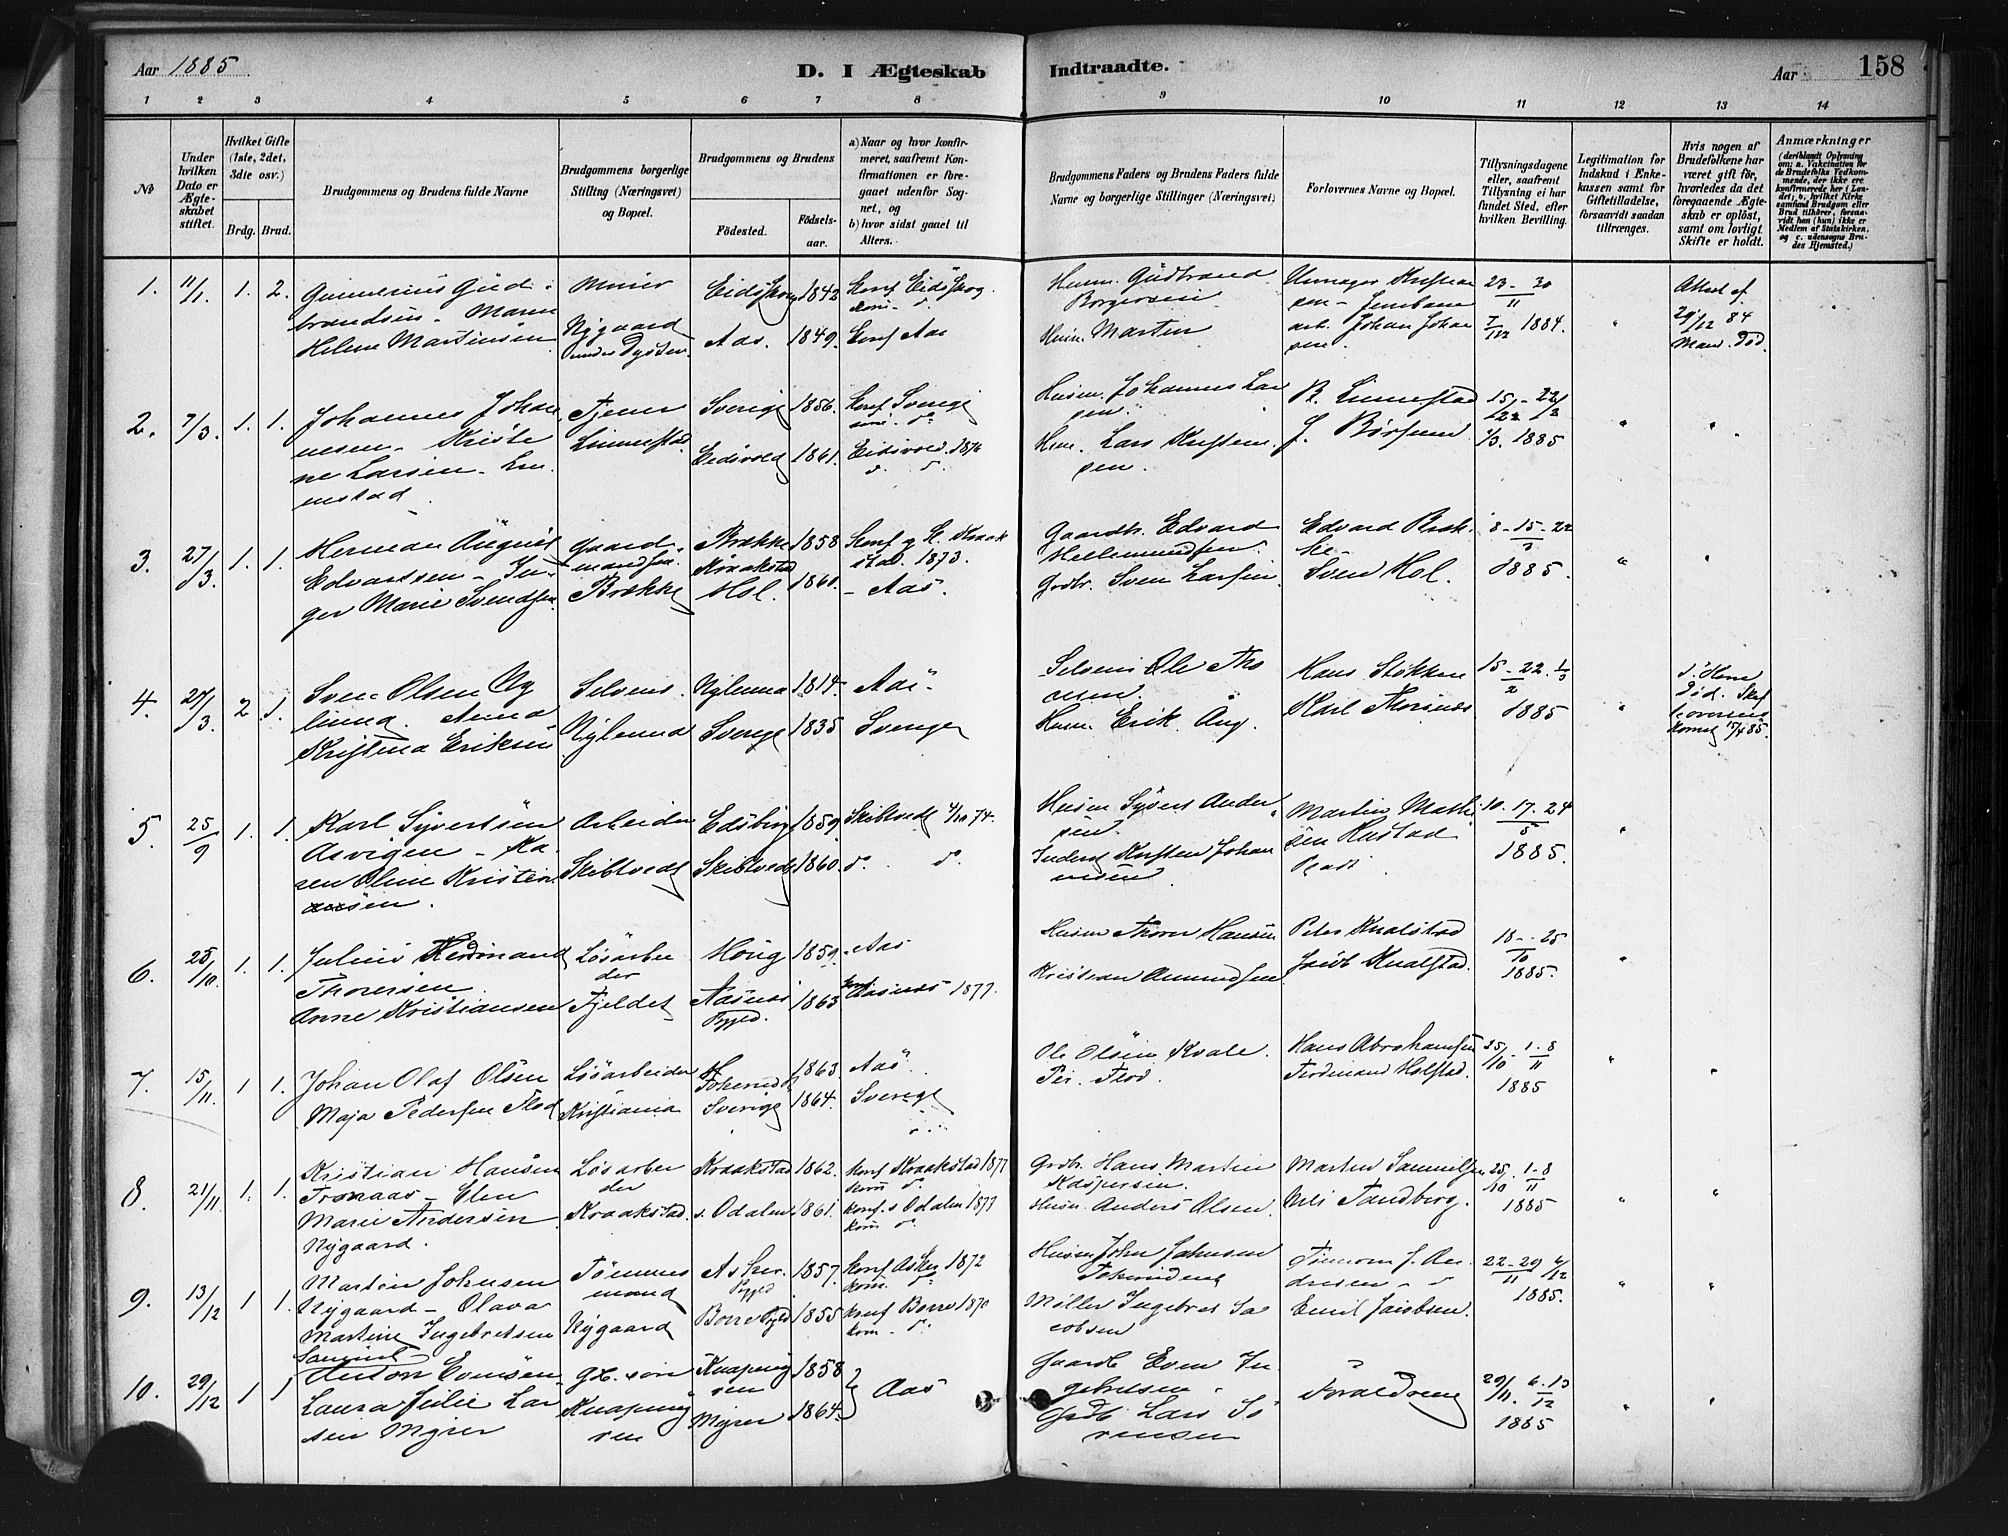 Aar 1885
D. I Ægteskab Indtraadte.
Aar
158
1 2 3 4 5 6 7 8 9 10 11 12 13 14
No
Under hvilken Dato er Ægteskabet stiftet.
Hvilket Gifte (1ste, 2det, 3die osv.)
Brdg. Brud.
Brudgommens og Brudens fulde Navne
Brudgommens borgerlige Stilling (Næringsvei) og Bopæl.
Brudgommens og Brudens
Fødested.
Fødselsaar.
a) Naar og hvor konfirmeret, saafremt Konfirmationen er foregaaet udenfor Sognet, og
b) hvor sidst gaaet til Alters.
Brudgommens Faders og Brudens Faders fulde Navne og borgerlige Stillinger (Næringsvei)
Forlovernes Navne og Bopæl.
Tillysningsdagene eller, saafremt Tillysning ei har fundet Sted, efter hvilken Bevilling.
Legitimation for Indskud i Enkekassen samt for Giftetilladelse, forsaavidt saadan tiltrænges.
Hvis nogen af Brudefolkene har været gift før, hvorledes da det foregaaende Ægteskab er opløst, samt om lovligt Skifte er holdt.
Anmærkninger
(deriblandt Oplysning om: a. Vakcination for de Brudefolks Vedkommende, der ikke ere konfirmerede her i Landet; b. hvilket Kirkesamfund Brudgom eller Brud tilhører, forsaavidt han (hun) ikke er Medlem af Statskirken, og c. udensogns Brudes Hjemsted.)
1. 11/1. 1. 2. Gud-
brandsen - Maren
Helene Martinsen
Murer
Nygaard
under Dysten.
Eidskog 1842
Aas. 1849.
Konf Eidskog
Konf Aas
Husm. Gudbrand
Borgersen
Husm. Marten
arb. Johan Johan
sen.
23 - 30
11
7/12 1884.
Attest af
29/12 84
Mand. Død.
2. 7/3. 1. 1. Johannes Johan
nesen - Kristi
ne Larsen - Lin
nestad
Tjener
Linnestad
Sverige 1856.
Eidsvold 1861.
Konf Sverige
Eidsvold. 1876
Husm. Johannes Lar
sen.
Husm. Lars Kristen
sen.
R. Linnestad
J. Børsum
15/ - 22/
1/3. 1885
3. 27/3. 1. 1. Herman August
Edvartsen - In-
ger Marie Svendsen
Gaard-
mandsøn.
Brække
Brække 1858
Kraakstad
Hol. 1860.
Konf og K. Kraak
stad. 1873.
- Aas.
Gaardbr. Edvard
Hellemundsen.
Grdbr. Sven Larsen
Edvard Bræk
ke -
Sven Hol.
8 - 15 - 22
3
1885.
4. 27/3. 2 1. Sven Olsen Ny
lenna. Anna
Kristina Eriksen
Selveier.
Nylenna
Nylenna 1814.
Sverige 1835
Aas.
Sverige
Selveier Ole Tho
resen.
Husm. Erik Aug.
Hans Stokken
Karl
15 - 22. 1/3
2
1885
1. Hans
Død. Skf
15/4 85.
5. 25/9 1. 1. Karl Syvertsen
Asvigen - Ka
ren Oline Kristian
sen.
Arbeider
Skibtvedt
Edsberg 1859.
Skibtvedt 1860.
Skibtvedt 4/10 74.
do. do
Husm Syvert Ander
sen.
Inderst Kristen Johan
nesen
Martin Math
sen Rustad
10. 17. 24
5
1885.
6. 25/10. 1. 1. Julius Ferdinand
Thoresen.
Anne Kristiansen
Løsarbei
der
Fjeldet
Houg 1859.
Aasnes 1863
Bygd.
Aas
Konf Aasnes 1877.
Husm Thorer Hansen
Kristian Amundsen.
Peter Kvalstad
Jacob Kvalstad.
18 - 25
10
1885.
7. 15/11. 1 1. Johan Olaf Olsen
Maja Pedersen Flod
Løsarbeider
Kristiania
Tokerud 1863.
Sverige 1864.
Aas.
Sverige
Ole Olsen Kvale.
Per. Flod.
Hans Abrahamsen
Ferdinand Holstad.
25/10 - 1 - 8
11
1885
8. 21/11. 1. 1. Kristian Hansen
Tronaas - Elen
Marie Andersen
Nygaard.
Løsarbei
der
Kraakstad.
Kraakstad 1862.
s. Odalen. 1861.
Konf Kraakstad 1877
Kom do.
Konf. s Odalen 1877
Kom do.
Grdbr. Hans Martin
Kaspersen.
Husm. Anders Olsen.
Martin Samuelsen
Nils Tandberg.
25/10 1 - 8
11
1885
9. 13/12 1 1. Martin Johnsen
Nygaard - Olava
Martine Ingebretsen
Tømmer
mand
Nygaard
Asker. 1857.
Bygd
Borre Bygd 1855
Konf Asker 1872
Kom. do
Konf Borre 1870
Kom - do.
Husm John Johnsen
Tokerudene
Møller Ingebret Ja
cobsen
Tømrm. J. An
dresen - do
Emil Jacobsen.
22 - 29 6/12
11
1885.
10. 29/12 1 1 Anton Evensen
Laura Julie Lar
sen Myrer
Gb. søn
Knapeng
sen
Knapeng 1858
sen
Myrer 1864.
Aas
Gaardb Even In
gebretsen
Grdb Lars Sø
rensen
29/11. 6. 13
12
1885